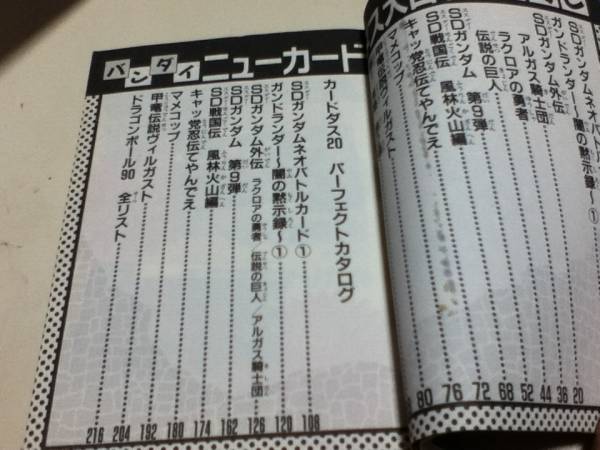 SDガンダムネオバトルカード① 20
ガンドランダー〜闇の黙示録〜① 36
SDガンダム外伝
アルガス騎士団 44
ラクロアの勇者 52
伝説の巨人 68
SDガンダム 第9弾 72
SD戦国伝 風林火山編 76
キャッ党忍伝てやんでえ 80
マメコップ
バンダイニューカード
カードダス20 パーフェクトカタログ
SDガンダムネオバトルカード① 108
ガンドランダー〜闇の黙示録〜① 120
SDガンダム外伝 ラクロアの勇者/伝説の巨人/アルガス騎士団 126
SDガンダム 第9弾 162
SD戦国伝 風林火山編 174
キャッ党忍伝てやんでえ 180
マメコップ 192
甲竜伝説ヴィルガスト 204
ドラゴンボール90 全リスト 216